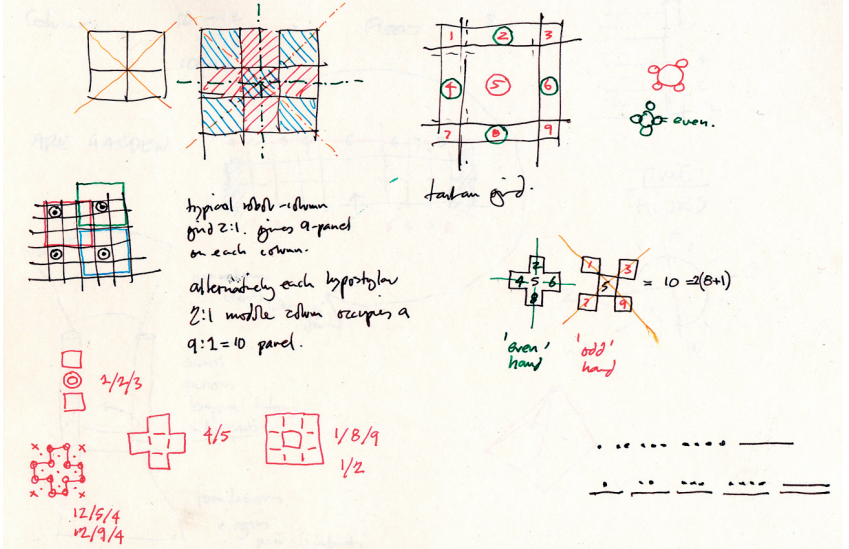 1 2 3
4 5 6
7 8 9
= even.
tartan grid.
typical robot-column
grid 2:1. gives 9-panel
on each column.
alternatively each hypostylar
2:1 module column occupies a
9:1 = 10 panel.
2
4 5 6
8
1 3
5
7 9
= 10 = 2(8+1)
'even' hand
'odd' hand
1/2/3
4/5
1/8/9
1/2
12/5/4
12/9/4